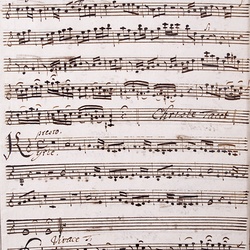 Christe Tacet
presto.
Kyrie.
Vivace